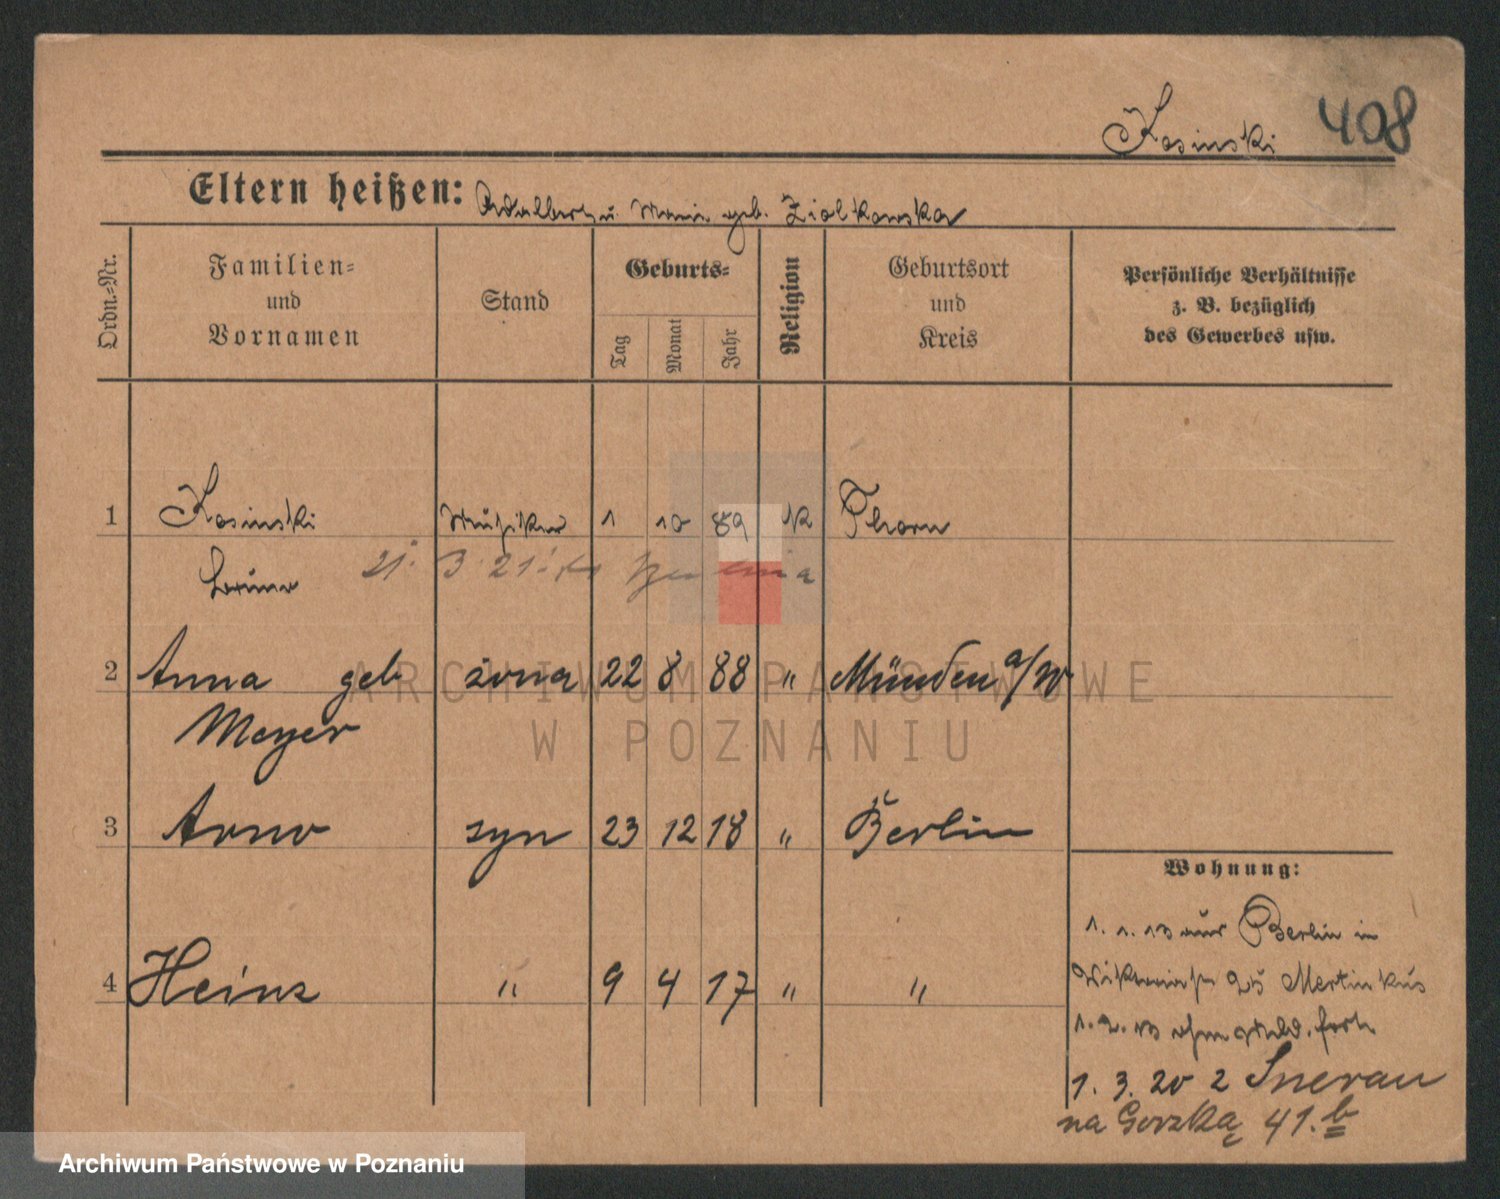 Kosinski 408
Eltern heißen: Adalbert u. Maria geb. Ziolkowska
Ordn.=Nr.
Familien=
und
Vornamen
Stand
Geburts=
Tag
Monat
Jahr
Religion
Geburtsort
und
Kreis
Persönliche Verhältnisse
z. B. bezüglich
des Gewerbes usw.
1 Kosinski Musiker 1 10 89 k Thorn
Bruno 21. 3. 21.
2 Anna geb żona 22 8 88 " Münden a/W
Meyer
3 Arno syn 23 12 18 " Berlin
4 Heinz " 9 4 17 " "
Wohnung:
1. 1. 13 aus Berlin in
25 Martinkus
1. 2. 13 ohne Meld. fort
1. 3. 20 z
na Gorzką 41. b
ARCHIWUM PAŃSTWOWE
W POZNANIU
Archiwum Państwowe w Poznaniu